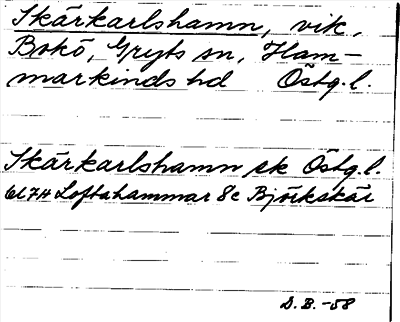 Skärkarlshamn, vik,
Bokö, Gryts sn, Ham-
markinds hd Östg.l.
Skärkarlshamn sk Östg.l.
bl 74 Loftahammar 8c Björkskär
D.B.-58